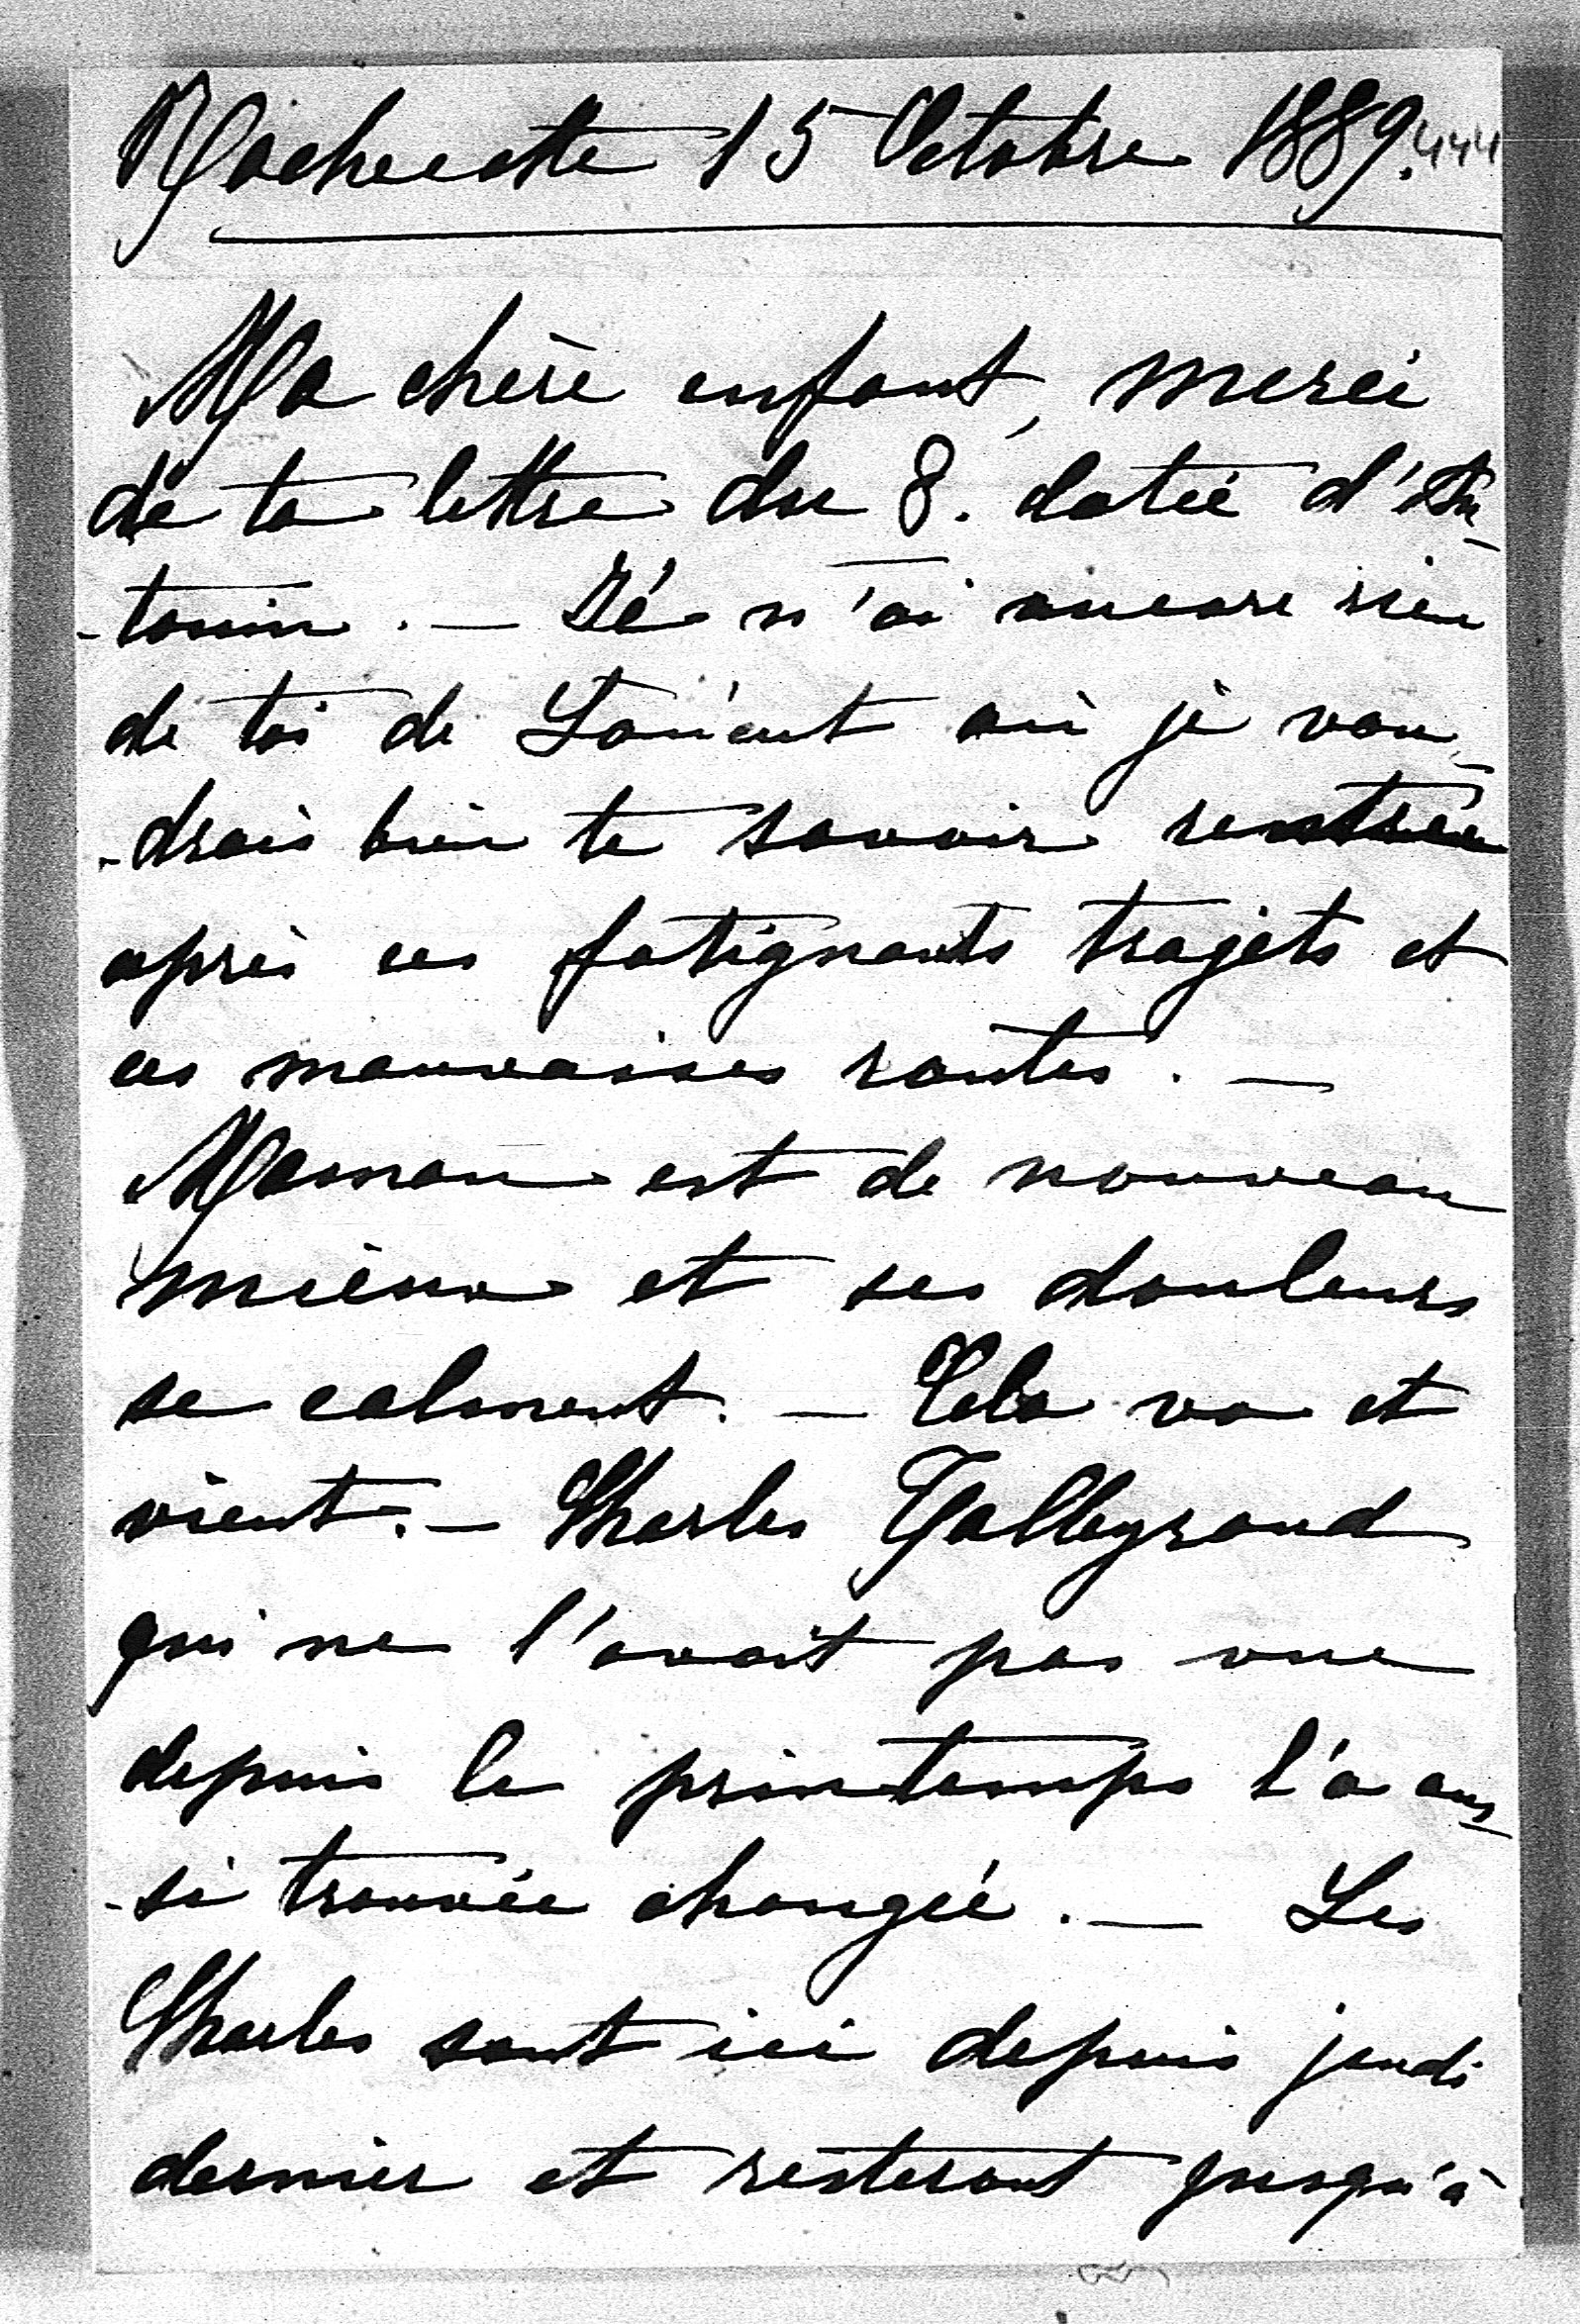 Rochecotte 15 Octobre 1889. 444
Ma chère enfant, merci
de ta lettre du 8. datée d'An-
-tonin. — Je n'ai encore rien
de toi de Lancut où je vou-
-drais bien te savoir rentrée
après ces fatignants trajets et
ces mauvaises routes. —
Maman est de nouveau
mieux et ses douleurs
se calment. — Cela va et
vient. — Charles Talleyrand
qui ne l'avait pas vue
depuis le printemps l'a aus-
-si trouvée changée. — Les
Charles sont ici depuis jeudi
dernier et resteront jusqu'à